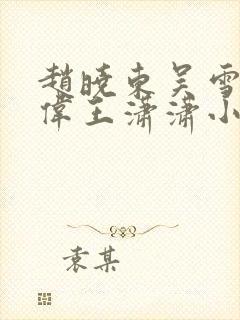 趙曉東吴雪
偉王潇潇小
袁某